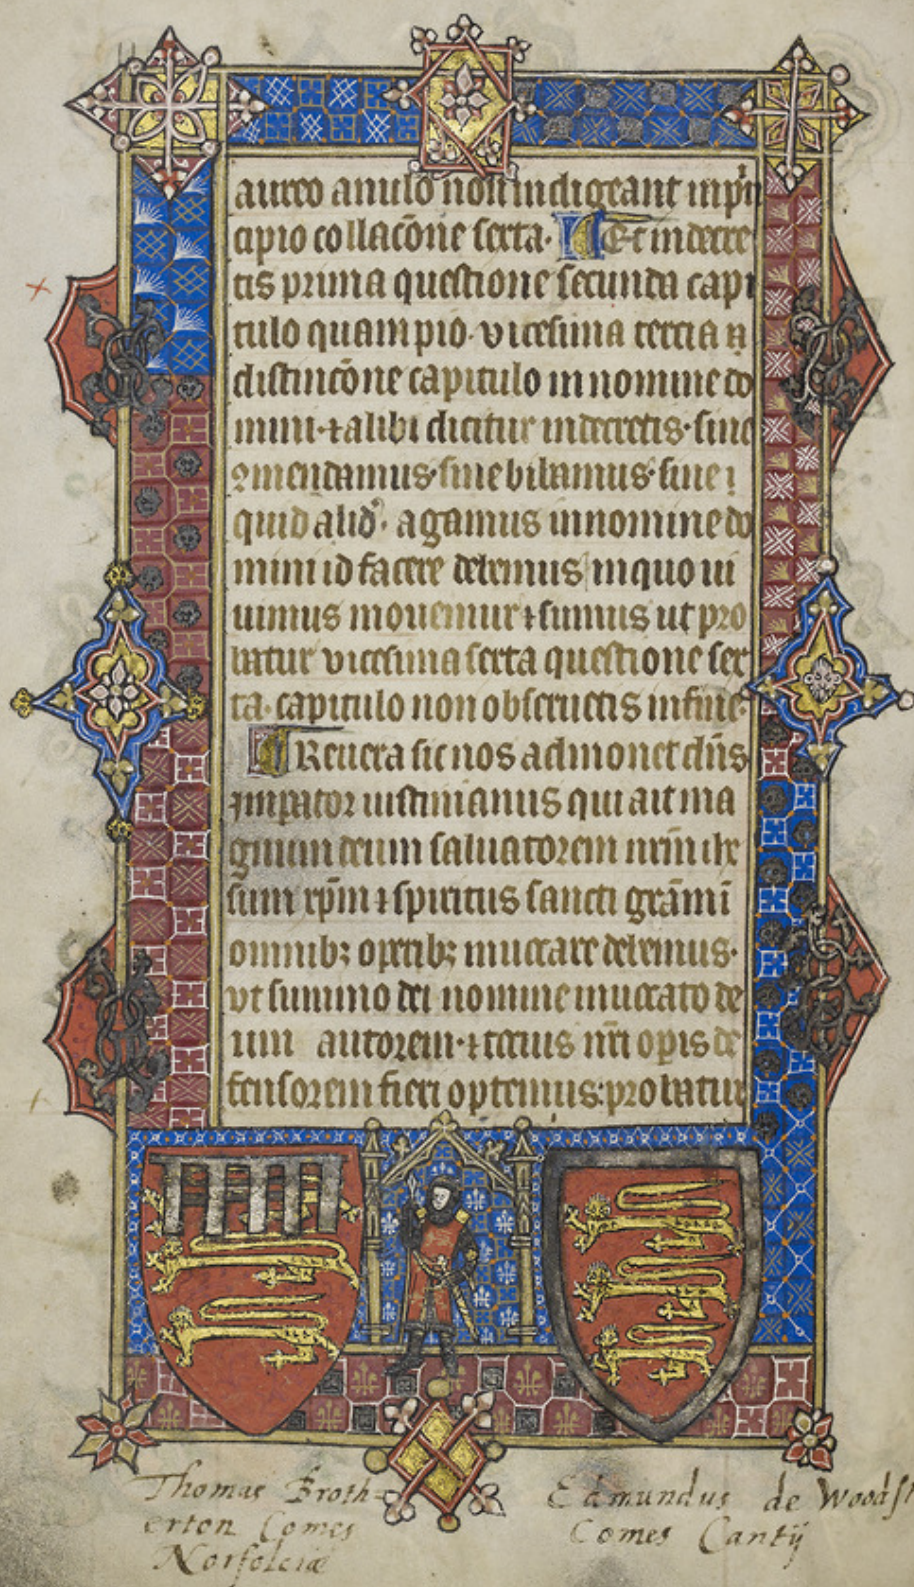 aureo anulo non indigeant in pͥn
cipio collac̄one serta· Et in decre
tis prima questione secunda capi
tulo quam pio· vicesima tercia
distinc̄one capitulo in nomine do
mini·⁊ alibi dicitur in decretis· siue
ꝯmendamus· siue bibamus· siue
quid aliđ· agamus in nomine do
mini id facere debemus in quo ui
uimus mouemur ⁊ sumus ut pro
batur vicesima serta questione ser
ta· capitulo non obseruetis in fine·
Reuera sic nos admonet dn̄s
imꝑator iustinianus qui ait ma
gnum deum saluatorem nr̄m ihe
sum xp̄m ⁊ spiritus sancti grām ī
omnibꝫ oꝑibꝫ inuocare debemus·
vt summo dei nomine inuocato de
um autorem·⁊ tocius nr̄i oꝑis de
fensorem fieri optemus: probatur
Thomas Broth=
erton Comes
Norfolciæ
Edmundus de Woodst
Comes Cantij